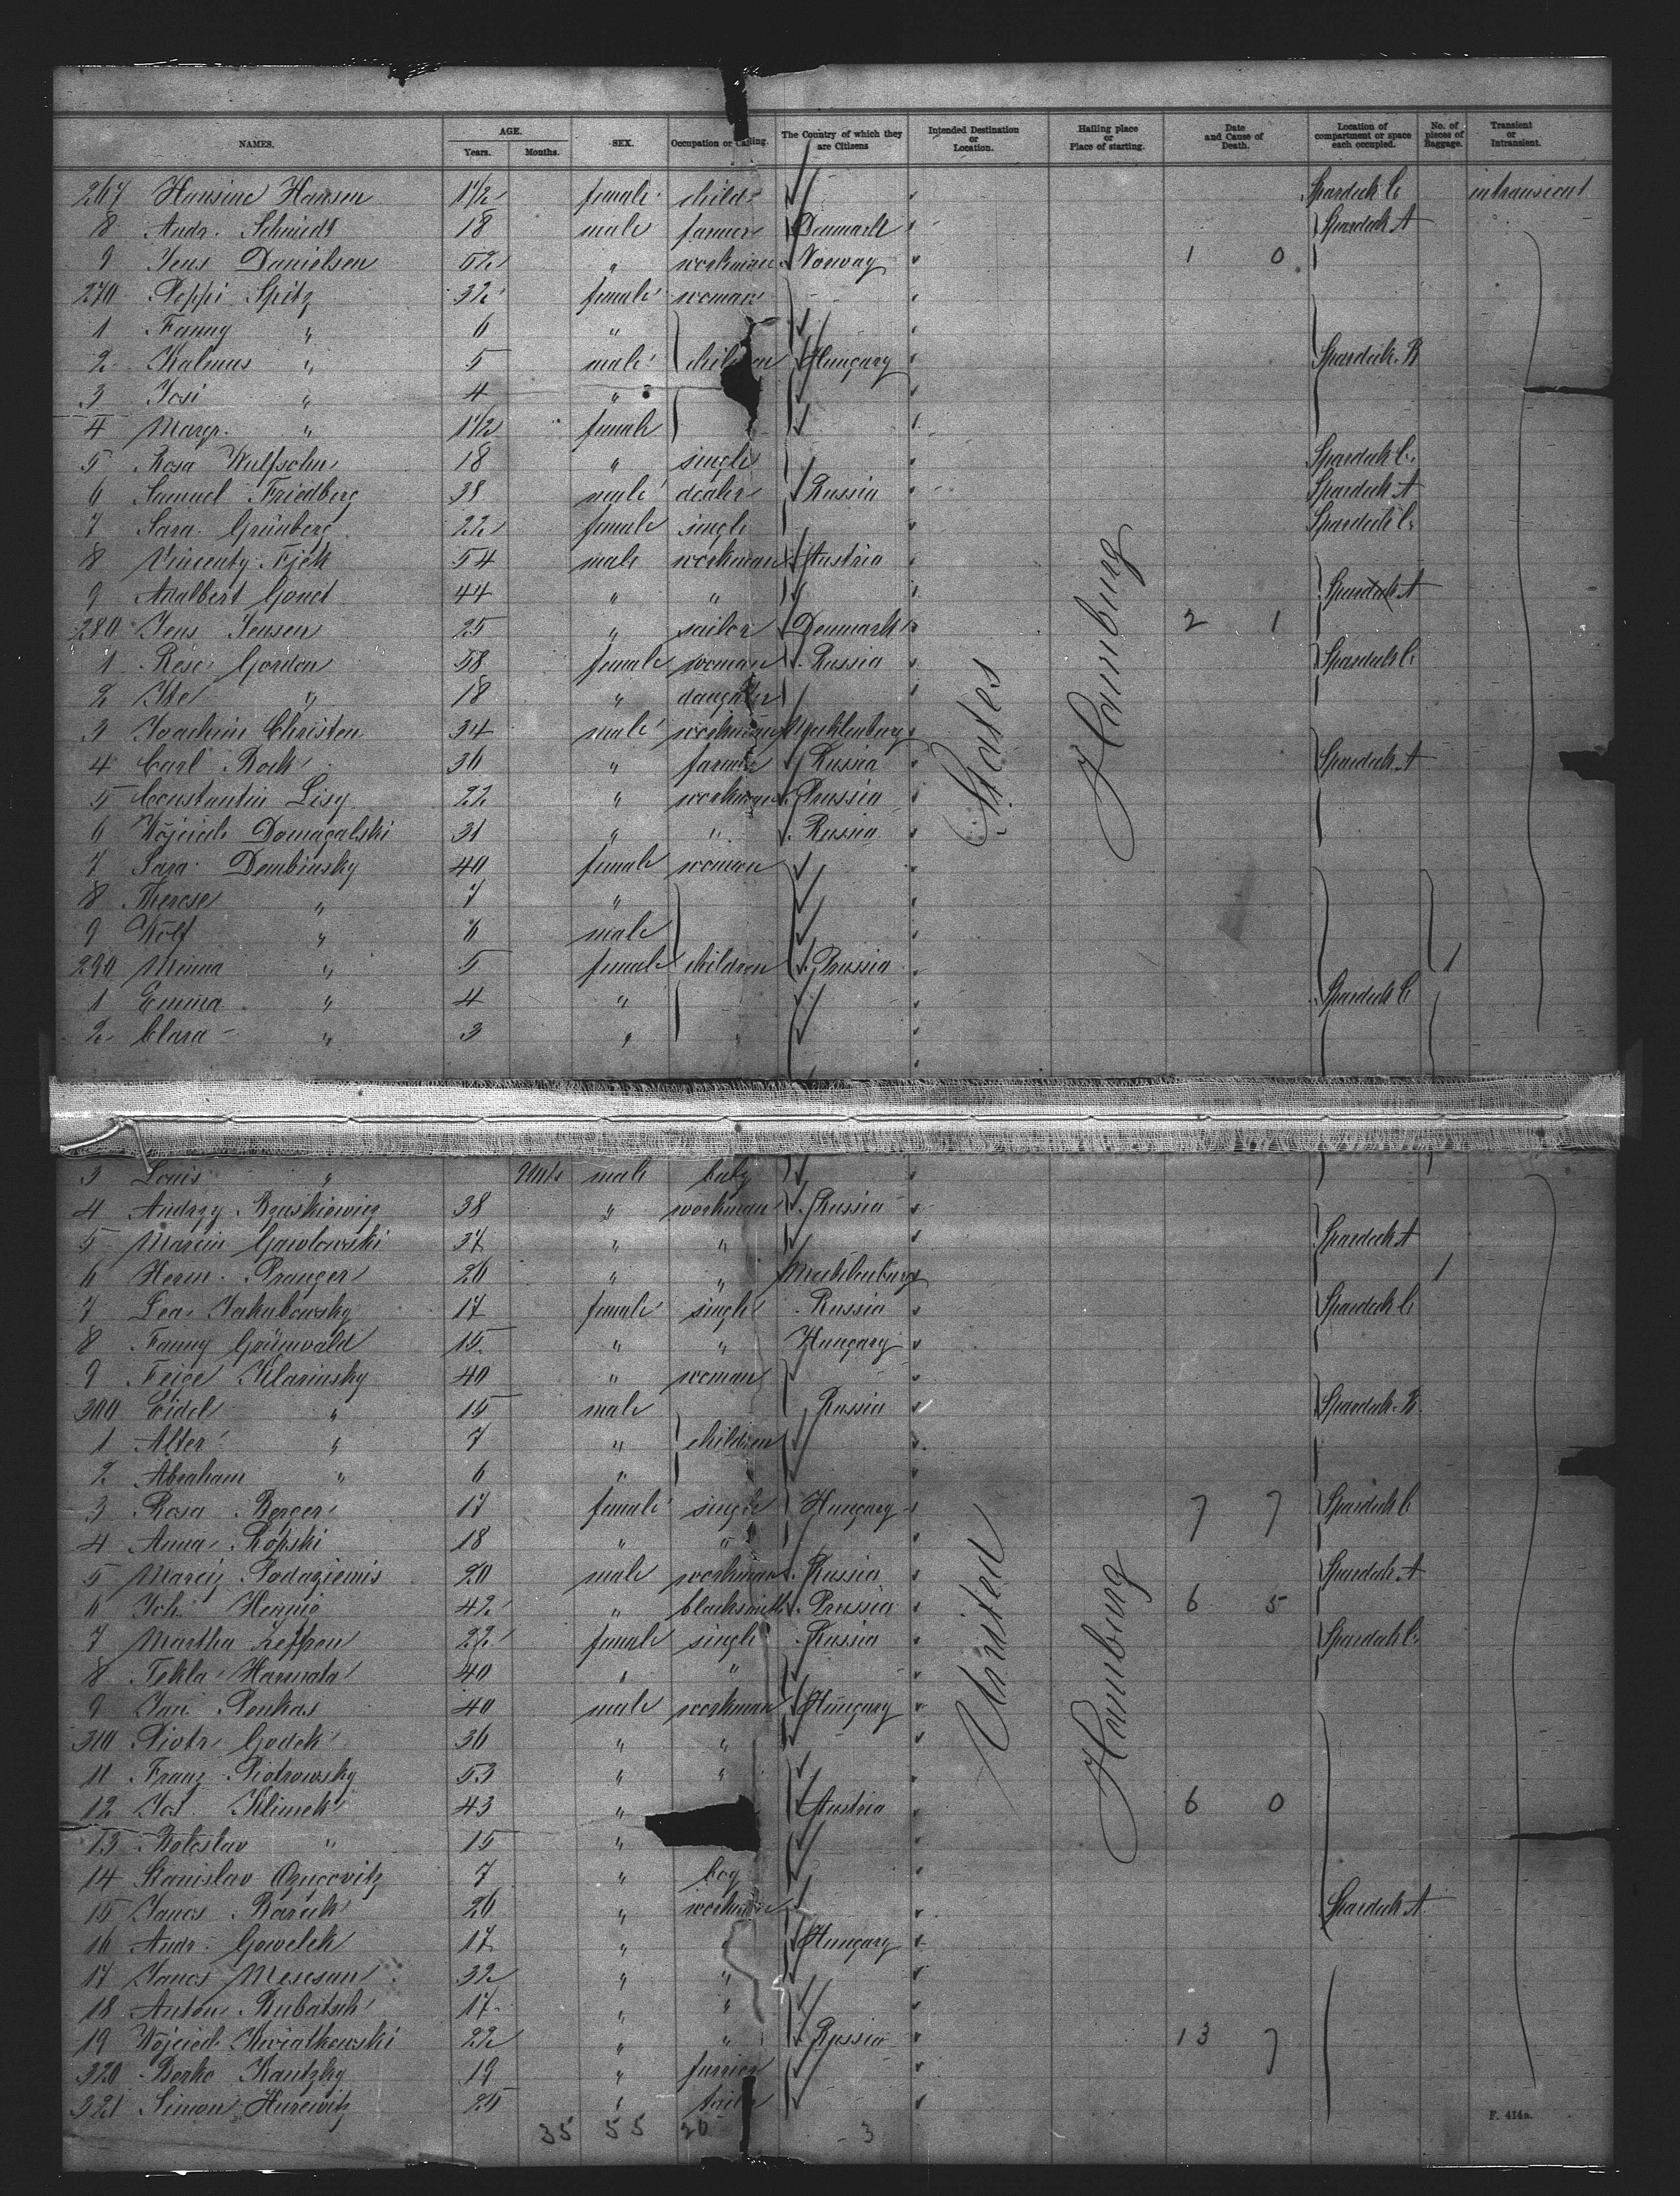 NAMES. AGE. Years. Months. SEX. Occupation or Calling. The Country of which they are Citizens Intended Destination or Location. Hailing place or Place of starting. Date and Cause of Death. Location of compartment or space each occupied. No. of pieces of Baggage. Transient or Intransient.
267 Hansine Hansen 1 1/2 female child Spardeck C intransient
8 Andr. Schmidt 18 male farmer Denmark Spardeck A
9 Jens Danielsen 52 " workman Norway 1 0
270 Peppi Spitz 32 female woman
1 Fanny " 6 "
2 Kalmus " 5 male children Hungary Spardeck B
3 Josi " 4 "
4 Margr. " 1 1/2 female
5 Rosa Wulfsohn 18 " single Spardeck C
6 Samuel Friedberg 38 male dealer Russia Spardeck A
7 Sara Grünberg 22 female single Spardeck C
8 Vincenty Fjek 54 male workman Austria
9 Adalbert Gouct 44 " " Spardeck A
280 Jens Jensen 25 " sailor Denmark 2 1
1 Rese Gordon 58 female woman Russia Spardeck C
2 Ite " 18 " daughter
3 Joachim Christen 34 male workman Mecklenburg
4 Carl Rock 36 " farmer Russia Spardeck A
5 Constantin Lisy 22 " workman Prussia
6 Wojciech Domagalski 31 " " Russia
7 Sara Dembinsky 40 female woman
8 Therese " 7 "
9 Wolf " 6 male
290 Minna " 5 female children Prussia 1
1 Emma " 4 " Spardeck C
2 Clara " 3 " "
States Hamburg
3 Louis " male baby
4 Andrzy Bruskiewicz 38 " workman Russia
5 Marcin Gawlowski 37 " " Spardeck A
6 Herm. Pranger 26 " " Mecklenburg 1
7 Lea Jakubowsky 17 female single Russia Spardeck C
8 Fanny Grünwald 15 " " Hungary
9 Feige Klarinsky 40 " woman
300 Eidel " 15 male Russia Spardeck B
1 Alter " 7 " children
2 Abraham " 6 "
3 Rosa Berger 17 female single Hungary 7 7 Spardeck C
4 Anna Kopski 18 " "
5 Marcij Podazienis 20 male workman Russia Spardeck A
6 Joh. Hennig 42 " blacksmith Prussia 6 5
7 Martha Leffron 22 female single Russia Spardeck C
8 Tekla Harmata 40 " "
9 Jan Penkas 40 male workman Hungary
310 Piotr Godek 36 " "
11 Franz Piotrowsky 53 " "
12 Jos. Klimek 43 " Austria 6 0
13 Boleslav " 15 "
14 Stanislav 7 " boy
15 Janos Barick 26 " workman Spardeck A
16 Andr. Gowelek 17 " " Hungary
17 Janos Mescsan 32 " "
18 Anton Rubatsch 17 " "
19 Wojciech Kwiatkowski 22 " " Russia 13 7
320 Berko Kantzky 19 " furrier
321 Simon Hurewitz 25 " tailor
United Hamburg
35 55 20 3
F. 414a.